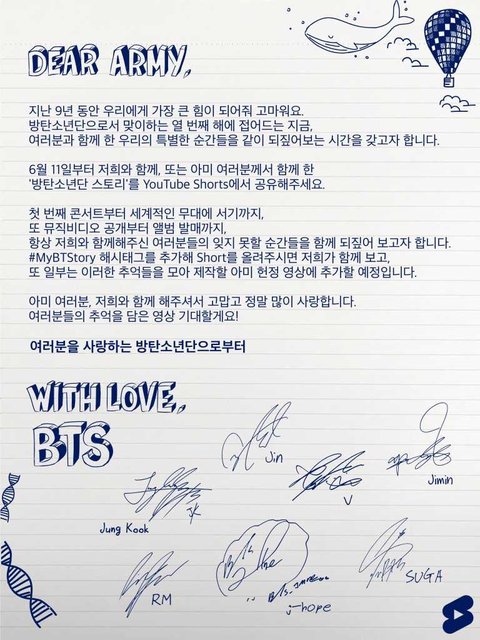 DEAR ARMY,
지난 9년 동안 우리에게 가장 큰 힘이 되어줘 고마워요.
방탄소년단으로서 맞이하는 열 번째 해에 접어드는 지금,
여러분과 함께 한 우리의 특별한 순간들을 같이 되짚어보는 시간을 갖고자 합니다.
6월 11일부터 저희와 함께, 또는 아미 여러분께서 함께 한
'방탄소년단 스토리'를 YouTube Shorts에서 공유해주세요.
첫 번째 콘서트부터 세계적인 무대에 서기까지,
또 뮤직비디오 공개부터 앨범 발매까지,
항상 저희와 함께해주신 여러분들의 잊지 못할 순간들을 함께 되짚어 보고자 합니다.
#MyBTStory 해시태그를 추가해 Short를 올려주시면 저희가 함께 보고,
또 일부는 이러한 추억들을 모아 제작할 아미 헌정 영상에 추가할 예정입니다.
아미 여러분, 저희와 함께 해주셔서 고맙고 정말 많이 사랑합니다.
여러분들의 추억을 담은 영상 기대할게요!
여러분을 사랑하는 방탄소년단으로부터
WITH LOVE,
BTS
Jin
V
Jimin
Jung Kook
JK
RM
j-hope
SUGA